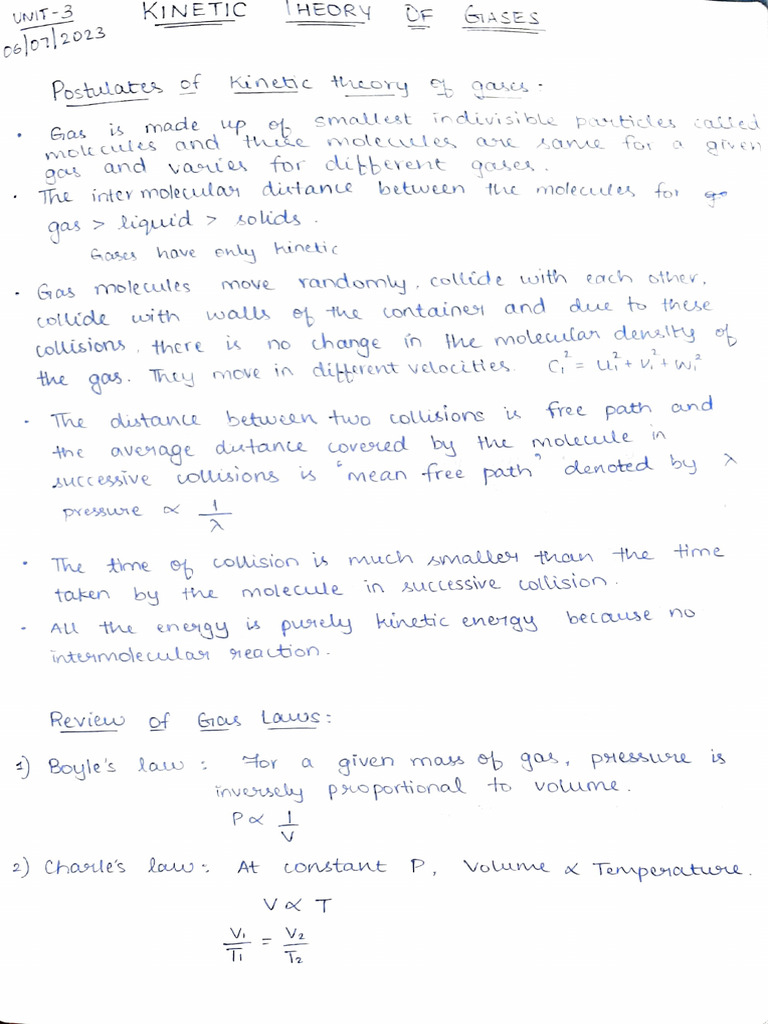 UNIT-3
06/07/2023
KINETIC THEORY OF GASES
Postulates of Kinetic theory of gases.
• Gas is made up of smallest indivisible particles called
molecules and these molecules are same for a given
gas and varies for different gases.
• The intermolecular distance between the molecules for
gas > liquid > solids.
Gases have only kinetic
• Gas molecules move randomly, collide with each other,
collide with walls of the container and due to these
collisions, there is no change in the molecular density of
the gas. They move in different velocities. C₁² = u₁² + v₁² + w₁²
• The distance between two collisions is free path and
the average distance covered by the molecule in
successive collisions is "mean free path" denoted by λ
pressure ∝ 1/λ
• The time of collision is much smaller than the time
taken by the molecule in successive collision.
• All the energy is purely kinetic energy because no
intermolecular reaction.
Review of Gas Laws:
1) Boyle's law : For a given mass of gas, pressure is
inversely proportional to volume.
P ∝ 1/V
2) Charle's law : At constant P, Volume ∝ Temperature.
V ∝ T
V₁/T₁ = V₂/T₂